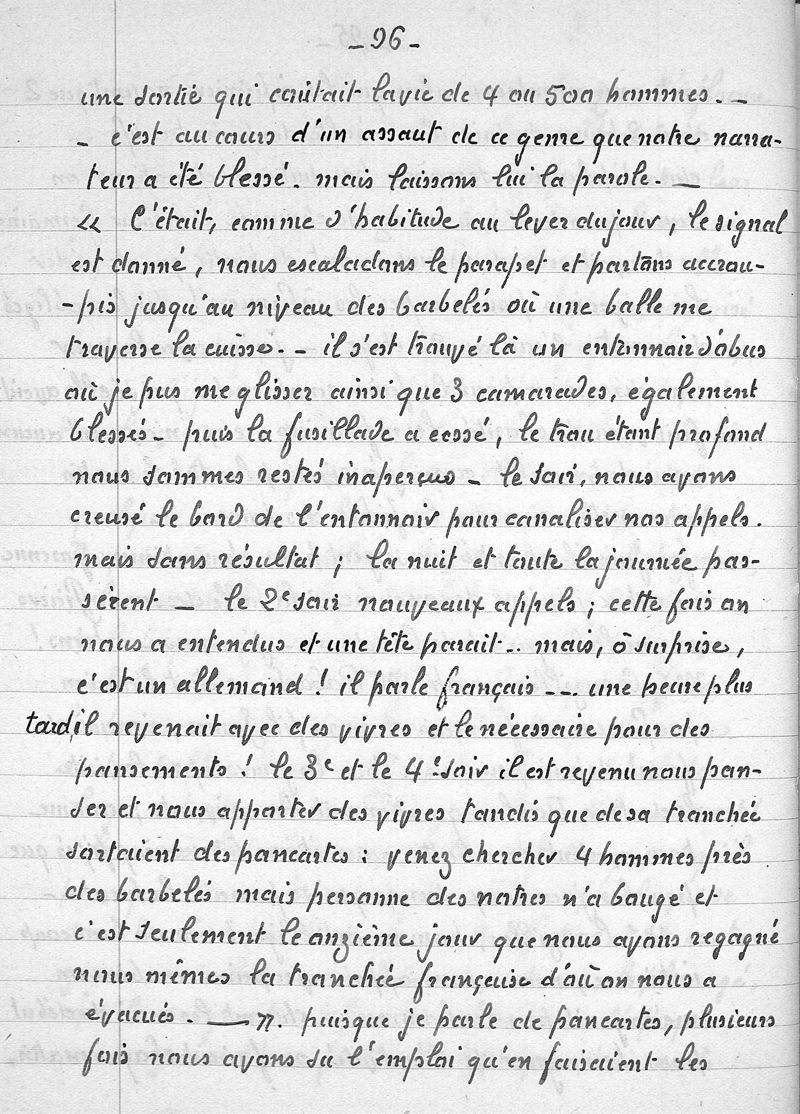 - 96 -
une sortie qui coûtait la vie de 4 ou 500 hommes. -
- c'est au cours d'un assaut de ce genre que notre narra-
teur a été blessé. mais laissons lui la parole. -
« C'était, comme d'habitude au lever du jour, le signal
est donné, nous escaladons le parapet et partons accrou-
-pis jusqu'au niveau des barbelés où une balle me
traverse la cuisse. - il s'est trouvé là un entonnoir d'obus
où je pus me glisser ainsi que 3 camarades, également
blessés - puis la fusillade a cessé, le trou étant profond
nous sommes restés inaperçus - le soir, nous avons
creusé le bord de l'entonnoir pour canaliser nos appels.
mais sans résultat ; la nuit et toute la journée pas-
sèrent - le 2e soir nouveaux appels ; cette fois on
nous a entendus et une tête parait.. mais, ô surprise,
c'est un allemand ! il parle français --- une heure plus
tard, il revenait avec des vivres et le nécessaire pour des
pansements ! le 3e et le 4e soir il est revenu nous pan-
ser et nous apporter des vivres tandis que de sa tranchée
sortaient des pancartes : venez chercher 4 hommes près
des barbelés mais personne des notres n'a bougé et
c'est seulement le onzième jour que nous avons regagné
nous mêmes la tranchée française d'où on nous a
évacués. - ». puisque je parle de pancartes, plusieurs
fois nous avons su l'emploi qu'en faisaient les